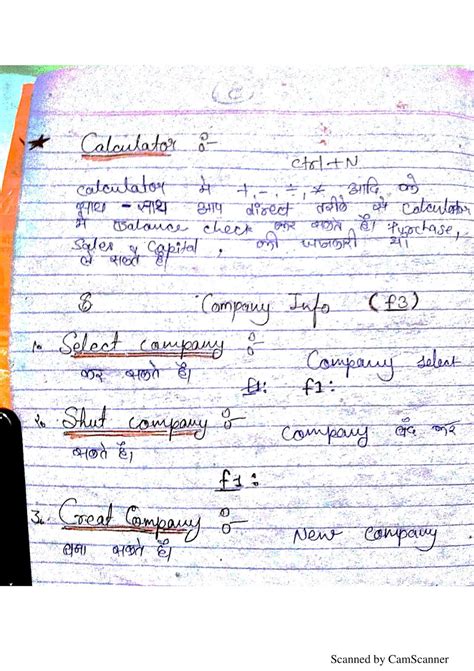 ★ Calculator :-
ctrl + N
Calculator में +, -, ÷, * आदि के
साथ - साथ आप direct तरीके से Calculator
में Balance check कर सकते हैं। Purchase,
Sales व Capital, की जानकारी भी
ले सकते हैं।
Company Info (f3)
1. Select company :-
Company select
कर सकते हैं।
f1:
2. Shut company :-
Company बंद कर
सकते हैं।
f1:
3. Creat Company :-
New Company
बना सकते हैं।
Scanned by CamScanner